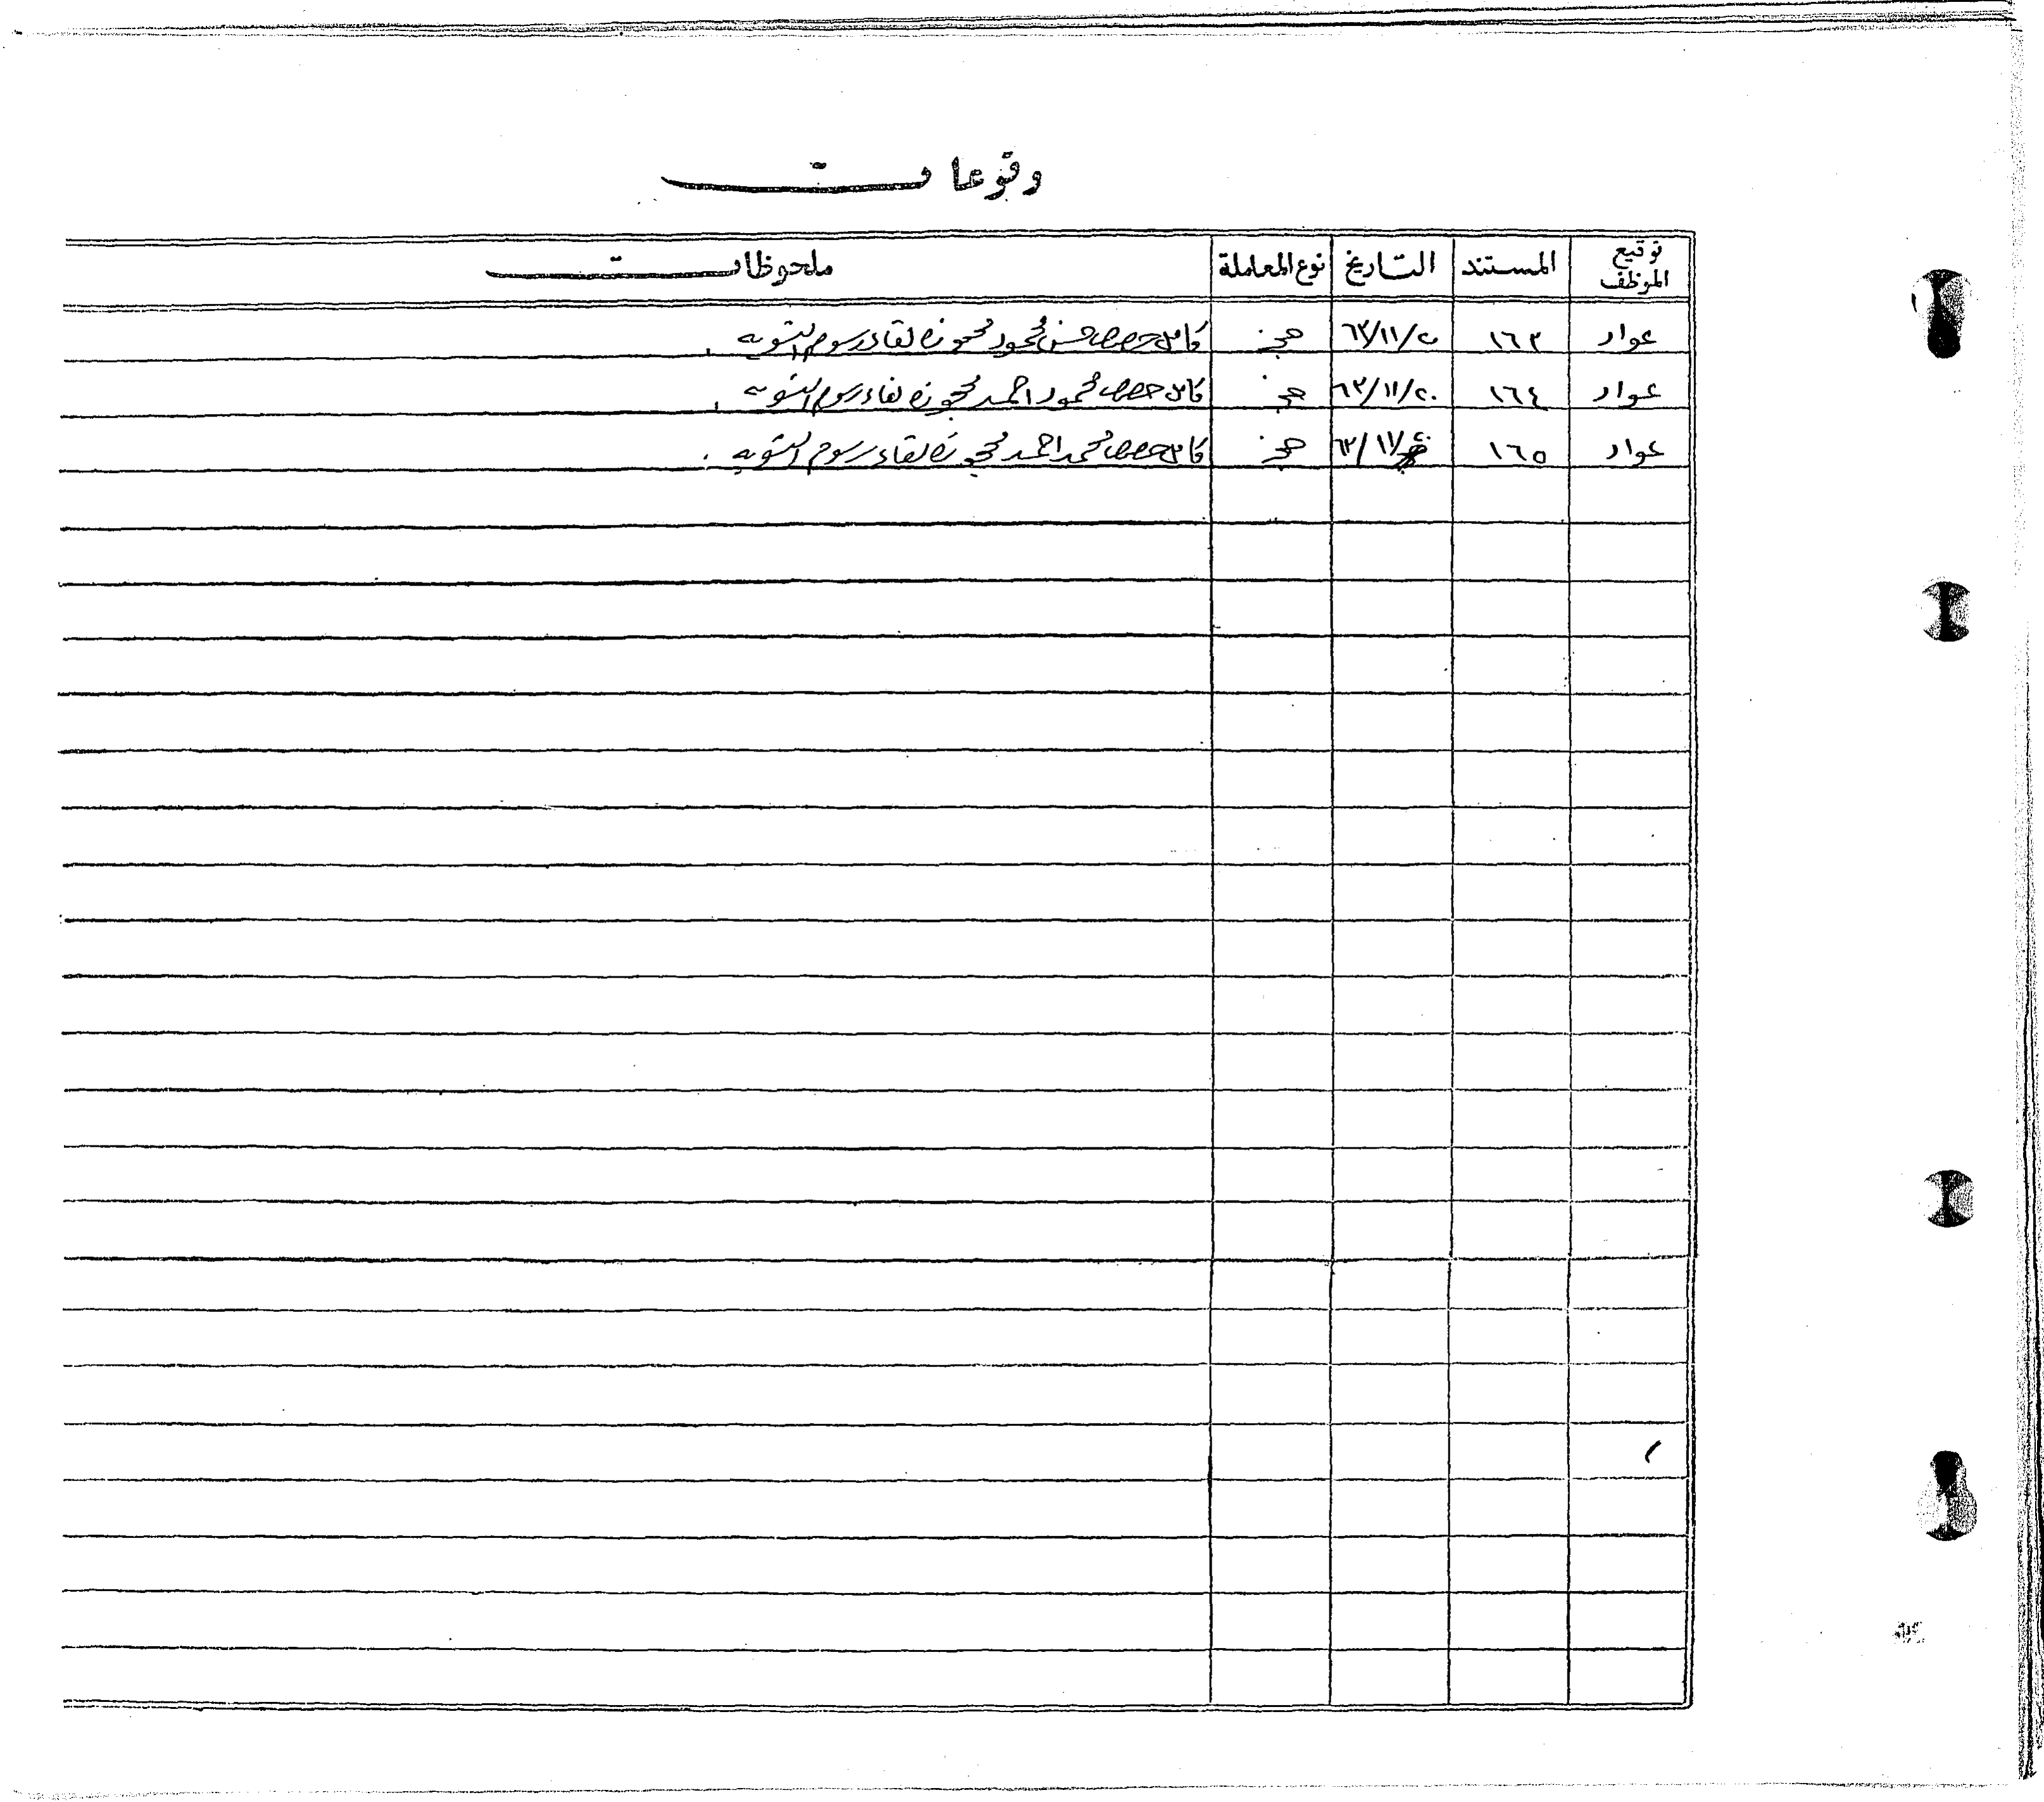 وقوعات
توقيع الموظف المستند التاريخ نوع المعاملة ملحوظات
عواد ١٦٣ ٦٣/١١/٢٠ حجز كامل حصص حسن محمود محجوزة لقاء رسوم التسوية .
عواد ١٦٤ ٦٣/١١/٢٠ حجز كامل حصص محمود احمد محجوزة لقاء رسوم التسوية .
عواد ١٦٥ حجز كامل حصص محمد احمد محجوزة لقاء رسوم التسوية .